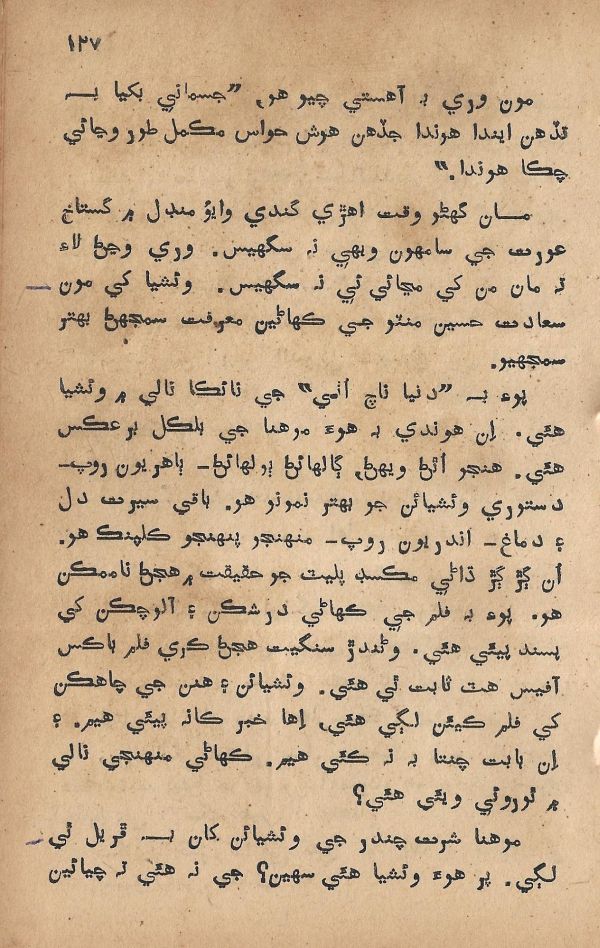 ١٢٧
مون وري بہ آهستي چيو هو, ”جسماني بکيا بہ
تڏهن ايندا هوندا جڏهن هوش حواس مڪمل طور وڃائي
چڪا هوندا.“
مان گهڻو وقت اهڙي گندي وايؤ منڊل ۾ گستاخ
عورت جي سامهون ويهي نہ سگهيس. وري وڃڻ لاءِ
تہ مان من کي مڃائي ئي نہ سگهيس. وئشيا کي مون
سعادت حسين منٽو جي ڪهاڻين معرفت سمجهڻ بهتر
سمجهيو.
پوءِ بہ ”دنيا ناچ اٺي“ جي نائڪا نالي ۾ وئشيا
هئي. اِن هوندي بہ هوءَ موهنا جي بلڪل برعڪس
هئي. هنجو اُٿڻ ويهڻ, ڳالهائڻ ٻولهائڻ- ٻاهريون روپ-
دستوري وئشيائن جو بهتر نمونو هو. باقي سيرت دل
۽ دماغ- اندريون روپ- منهنجو پنهنجو ڪلپنڪ هو.
اُن ڳڙ ڳڙ ڌاڻي مڪسڊ پليٽ جو حقيقت ۾ هجڻ ناممڪن
هو. پوءِ بہ فلم جي ڪهاڻي درشڪن ۽ آلوچڪن کي
پسند پيئي هئي. وڻندڙ سنگيت هجڻ ڪري فلم باڪس
آفيس هٽ ثابت ٿي هئي. وئشيائن ۽ هنن جي چاهڪن
کي فلم ڪيئن لڳي هئي, اِها خبر ڪانہ پيئي هيم. ۽
اِن بابت چنتا بہ نہ ڪئي هيم. ڪهاڻي منهنجي نالي
۾ ٿوروئي ويئي هئي؟
موهنا شرت چندر جي وئشيائن کان بہ ڦريل ٿي
لڳي. پر هوءَ وئشيا هئي سهين؟ جي نہ هئي تہ چيائين